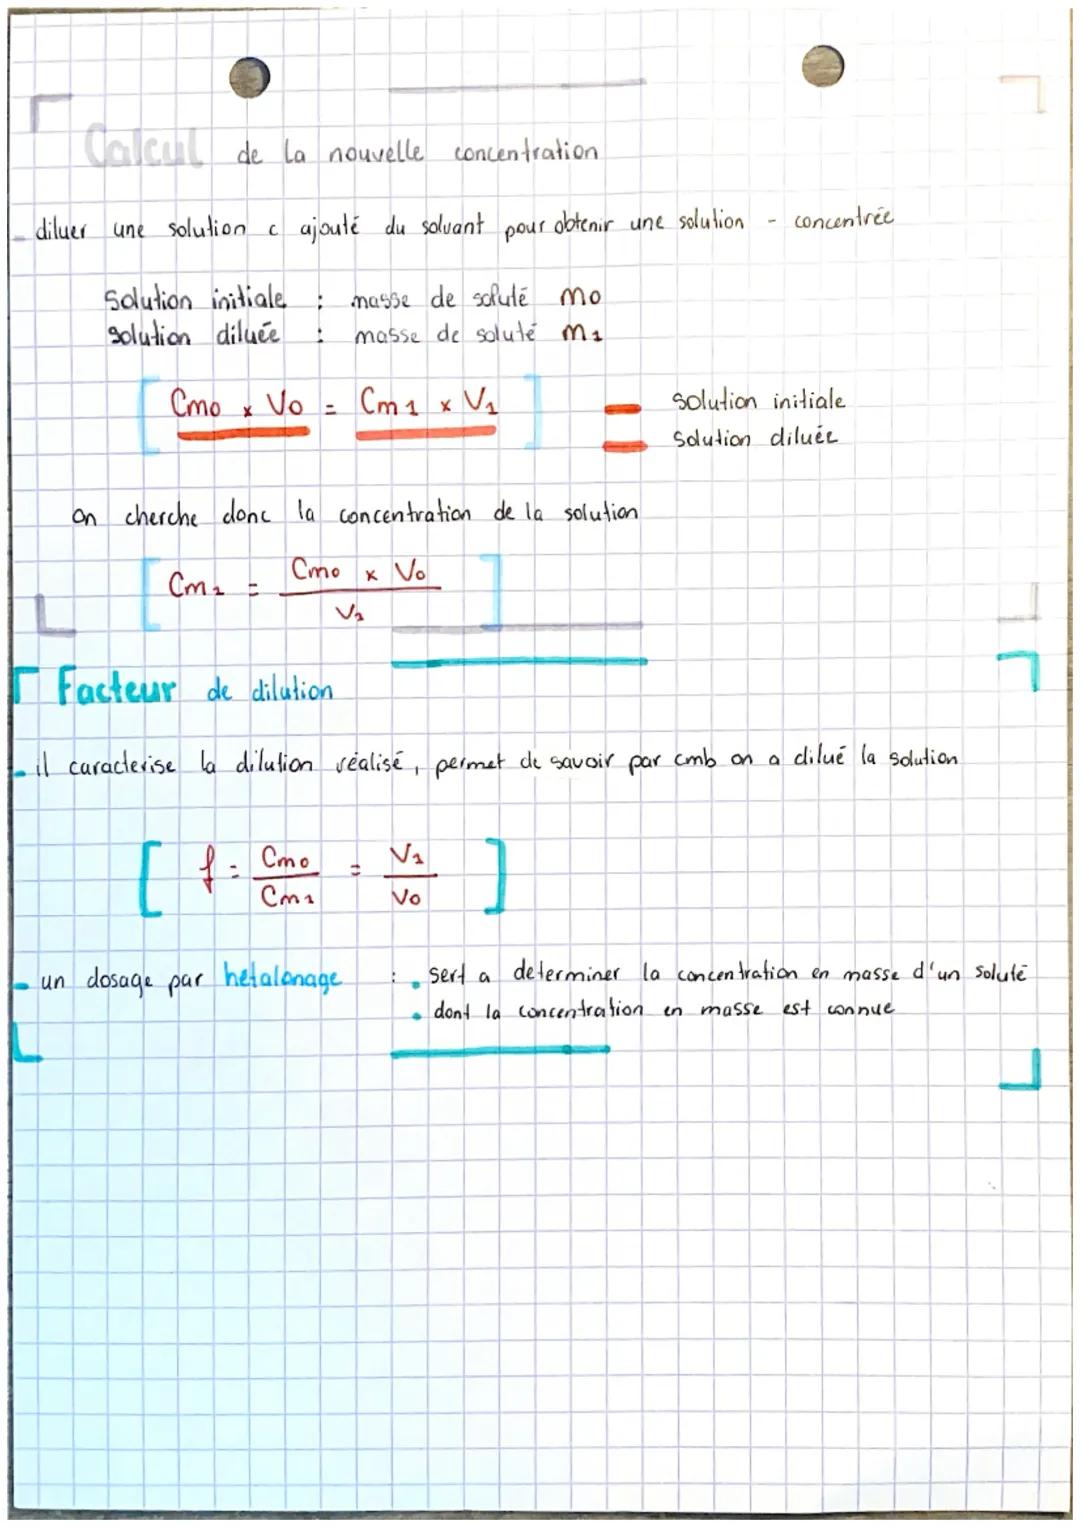 Calcul de la nouvelle concentration
- diluer une solution c ajouté du solvant pour obtenir une solution - concentrée
Solution initiale : masse de soluté m0
Solution diluée : masse de soluté m1
[ Cm0 x V0 = Cm1 x V1 ]
solution initiale
Solution diluée
on cherche donc la concentration de la solution
[ Cm1 = Cm0 x V0 / V1 ]
Facteur de dilution
- il caracterise la dilution réalisé, permet de savoir par cmb on a dilué la solution
[ f = Cm0 / Cm1 = V1 / V0 ]
- un dosage par hetalonage : • sert a determiner la concentration en masse d'un soluté
• dont la concentration en masse est connue